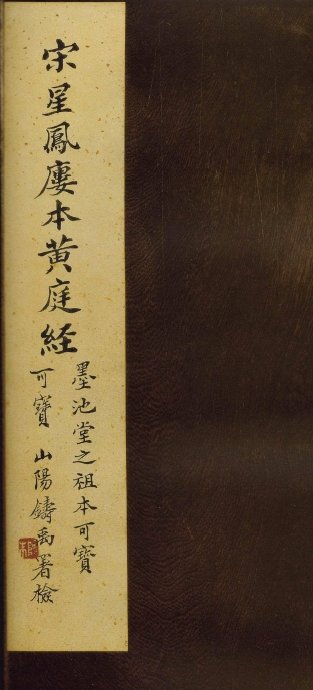 宋星鳳廔本黄庭経
墨池堂之祖本可寶
可寶 山陽鑄禹署檢